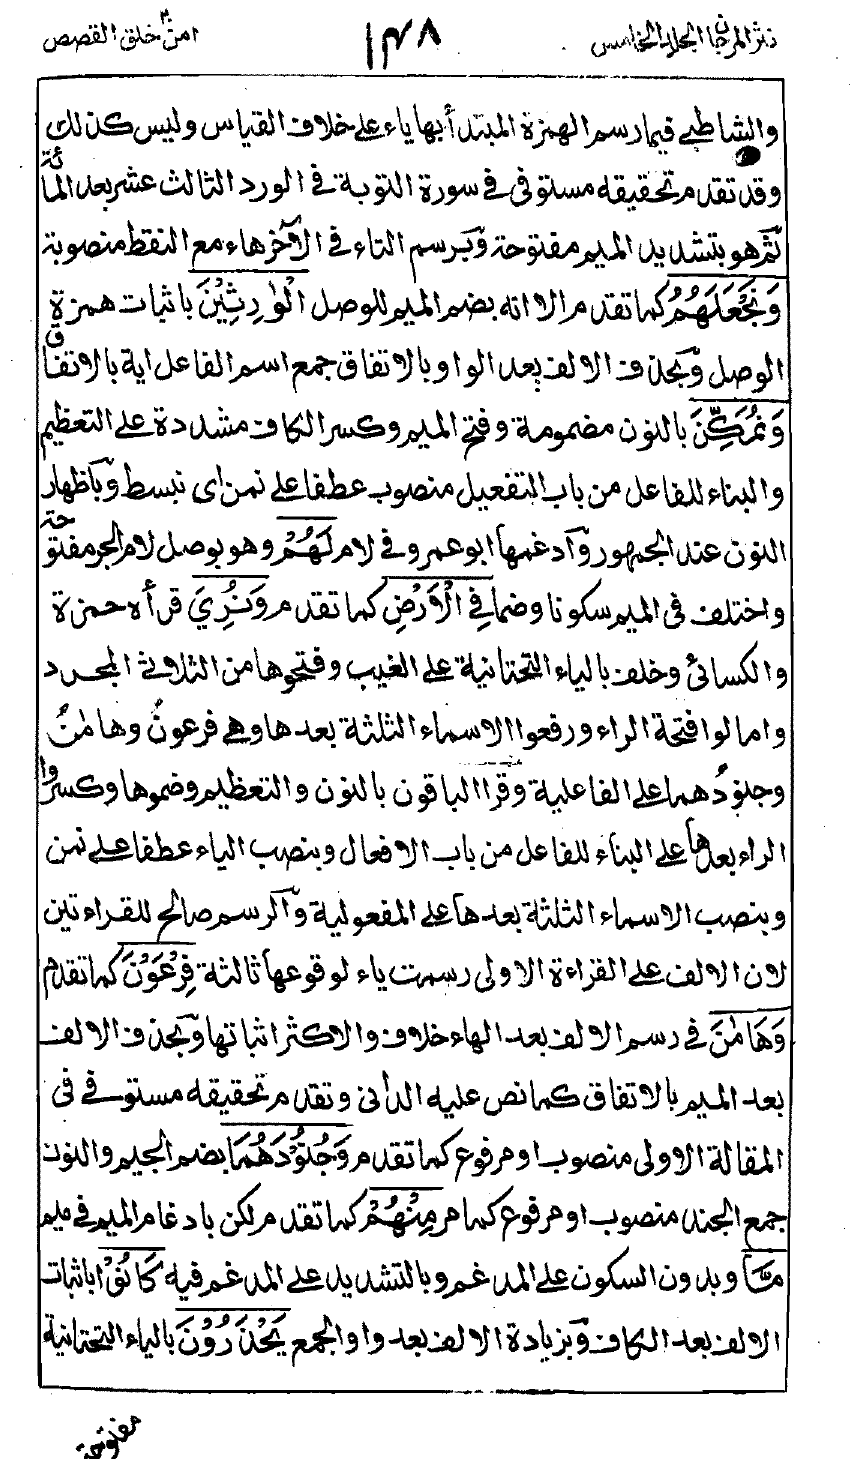 نثر المرجان الجلد الخامس
١٤٨
امن خلق القصص
والشاطبي فيما رسم الهمزة المبتدأ بها ياء على خلاف القياس وليس كذلك
وقد تقدم تحقيقه مستوفى في سورة التوبة في الورد الثالث عشر بعد المائة
ثم هو بتشديد الميم مفتوحة وبرسم التاء في الآخر هاء مع النقط منصوبة
وَنَجْعَلَهُمُ كما تقدم الا انه بضم الميم للوصل الْوٰرِثِيْنَ باثبات همزة
الوصل وبحذف الالف بعد الواو بالاتفاق جمع اسم الفاعل اية بالاتفاق
وَنُمَكِّنَ بالنون مضمومة وفتح الميم وكسر الكاف مشددة على التعظيم
والبناء للفاعل من باب التفعيل منصوب عطفا على نمن اى نبسط وباظهار
النون عند الجمهور وادغمها ابو عمرو في لام لَهُمْ وهو بوصل لام الجر مفتوحة
واختلف فى الميم سكونا وضما فِي الْاَرْضِ كما تقدم وَنُرِيَ قرأه حمزة
والكسائى وخلف بالياء التحتانية على الغيب وفتحوها من الثلاثي المجرد
وامالوا فتحة الراء ورفعوا الاسماء الثلثة بعدها وهي فرعونُ وهامٰنُ
وجنودُهما على الفاعلية وقرا الباقون بالنون والتعظيم وضموها وكسروا
الراء بعدها على البناء للفاعل من باب الافعال وبنصب الياء عطفا على نمن
وبنصب الاسماء الثلثة بعدها على المفعولية والرسم صالح للقراءتين
لان الالف على القراءة الاولى رسمت ياء لوقوعها ثالثة فِرْعَوْنَ كما تقدم
وَهَامٰنَ في رسم الالف بعد الهاء خلاف والاكثر اثباتها وبحذف الالف
بعد الميم بالاتفاق كما نص عليه الدانى وتقدم تحقيقه مستوفى فى
المقالة الاولى منصوب او مرفوع كما تقدم وَجُنُوْدَهُمَا بضم الجيم والنون
جمع الجند منصوب او مرفوع كما مر مِنْهُمْ كما تقدم لكن بادغام الميم في ميم
مَّا وبدون السكون على المدغم وبالتشديد على المدغم فيه كَانُوْا باثبات
الالف بعد الكاف وبزيادة الالف بعد واو الجمع يَحْذَرُوْنَ بالياء التحتانية
مفتوحة